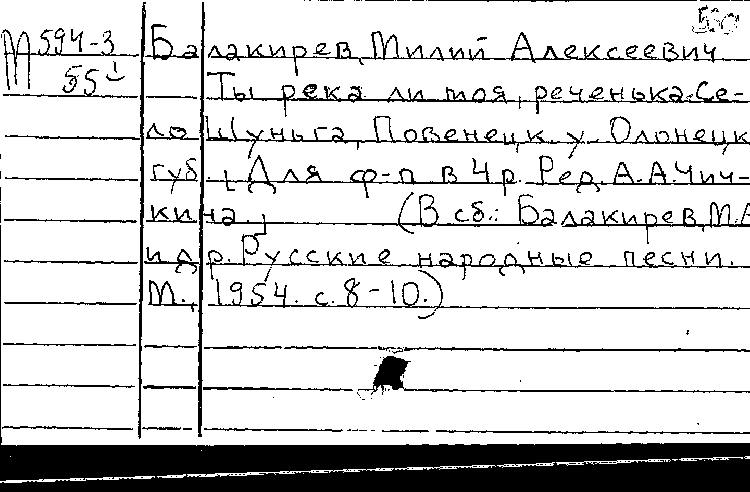 500
М 594-3 Балакирев, Милий Алексеевич
55 Ты река ли моя, реченька. Се-
ло Шуньга, Повенецк. у. Олонецк
губ. [Для ф-п в 4 р. Ред. А. А. Чич-
кина.] (В сб.: Балакирев, М.А
и др. Русские народные песни.
М., 1954. с. 8-10.)